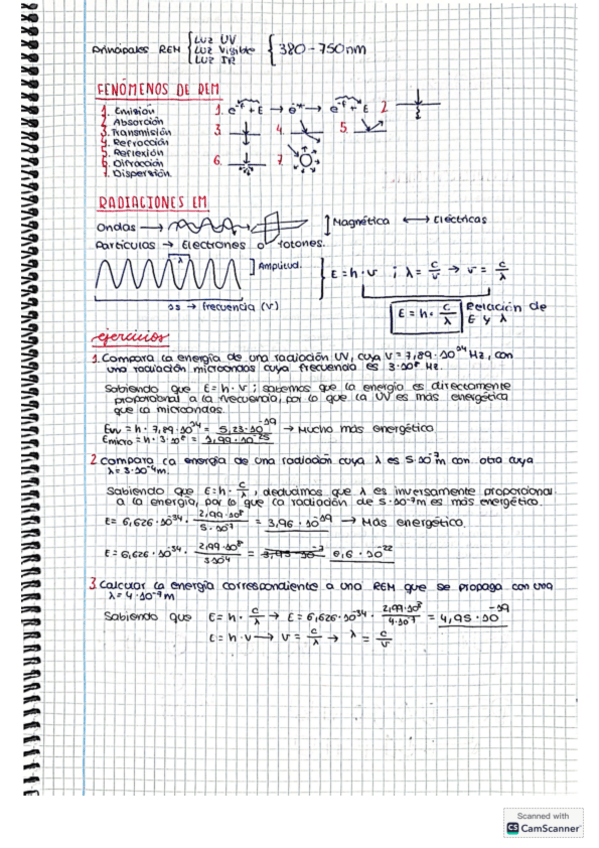 Principales REM { Luz UV
Luz Visible
Luz IR { 380-750nm
FENÓMENOS DE REM
1. Emisión
2. Absorción
3. Transmisión
4. Refracción
5. Reflexión
6. Difracción
7. Dispersión.
1. 2. 3. 4. 5. 6. 7.
RADIACIONES EM
Ondas → ] Magnética ↔ Eléctricas
Partículas → Electrones o fotones.
λ ] Amplitud. { E = h · ν ; λ = c/ν → ν = c/λ
→ frecuencia (ν) E = h · c/λ Relación de E y λ
ejercicios
1. Compara la energía de una radiación UV, cuya ν = 7,89 · 10¹⁴ Hz, con
una radiación microondas cuya frecuencia es 3 · 10⁸ Hz.
Sabiendo que E = h · ν ; sabemos que la energía es directamente
proporcional a la frecuencia, por lo que la UV es más energética
que la microondas.
Euv = h · 7,89 · 10¹⁴ = 5,23 · 10⁻¹⁹ → Mucho más energética.
Emicro = h · 3 · 10⁸ = 1,99 · 10⁻²⁵
2. Compara la energía de una radiación cuya λ es 5 · 10⁻⁷m con otra cuya
λ = 3 · 10⁻⁴m.
Sabiendo que E = h · c/λ, deducimos que λ es inversamente proporcional
a la energía, por lo que la radiación de 5 · 10⁻⁷m es más energética.
E = 6,626 · 10⁻³⁴ · 2,99 · 10⁸/5 · 10⁻⁷ = 3,96 · 10⁻¹⁹ → Más energética.
E = 6,626 · 10⁻³⁴ · 2,99 · 10⁸/3 · 10⁻⁴ = 6,6 · 10⁻²²
3. Calcular la energía correspondiente a una REM que se propaga con una
λ = 4 · 10⁻⁷m
Sabiendo que E = h · c/λ → E = 6,626 · 10⁻³⁴ · 2,99 · 10⁸/4 · 10⁻⁷ = 4,95 · 10⁻¹⁹
E = h · ν → ν = c/λ → λ = c/ν
Scanned with
CS CamScanner